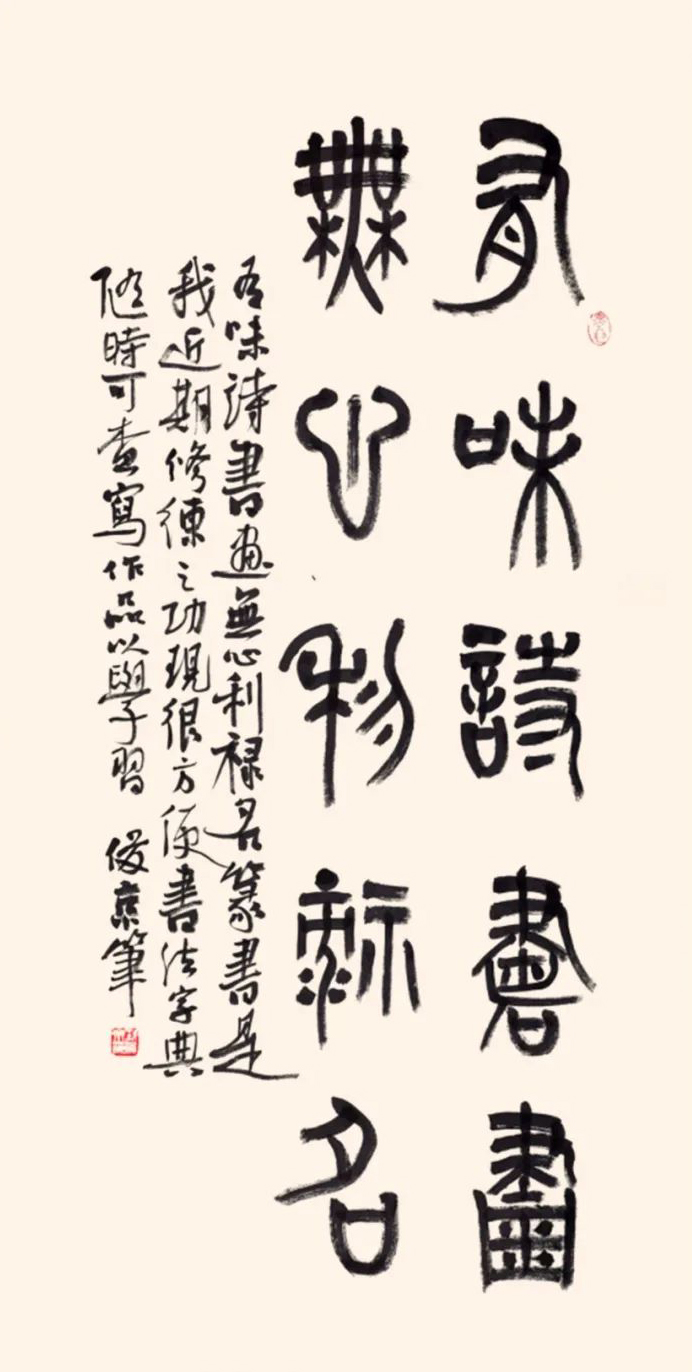 有味詩書畫
無心利祿名
有味詩書畫無心利禄名篆書是
我近期修練之功現很方便書法字典
隨時可查寫作品以學習 俊京筆